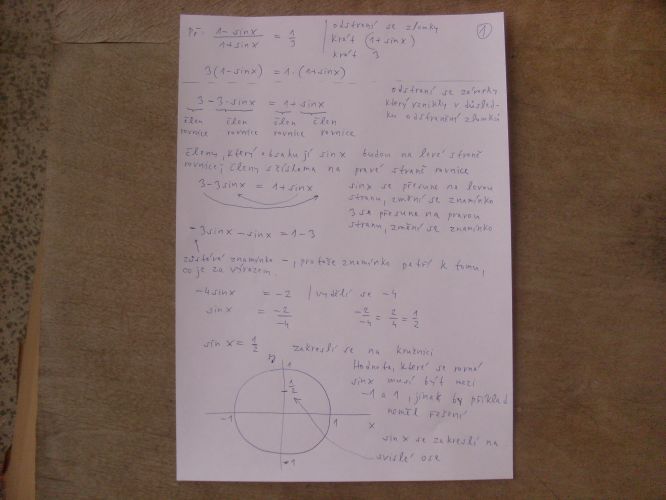 Př: 1-sinx / 1+sinx = 1/3
odstraní se zlomky
krát (1+sinx)
krát 3
1
3(1-sinx) = 1·(1+sinx)
odstraní se závorky
který vznikly v důsled-
ku odstranění zlomků
3 - 3·sinx = 1 + sinx
člen člen člen člen
rovnice rovnice rovnice rovnice
členy, který obsahují sinx budou na levé straně
rovnice; členy s číslama na pravé straně rovnice
3-3sinx = 1+sinx
sinx se přesune na levou
stranu, změní se znamínko
3 se přesune na pravou
stranu, změní se znamínko
-3sinx - sinx = 1-3
zůstává znamínko -, protože znamínko patří k tomu,
co je za výrazem.
-4sinx = -2 | vydělí se -4
sinx = -2/-4
-2/-4 = 2/4 = 1/2
sin x = 1/2
zakreslí se na kružnici
Hodnota, které se rovná
sinx musí být mezi
-1 a 1, jinak by příklad
neměl řešení
1
1/2
-1
1
x
-1
sinx se zakreslí na
svislé ose